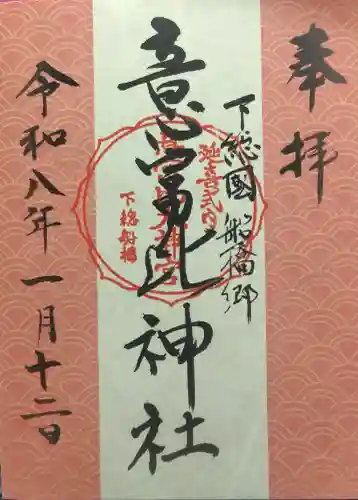 奉拝
下総國船橋郷
意富比神社
延喜式内
下総船橋
令和八年一月十二日